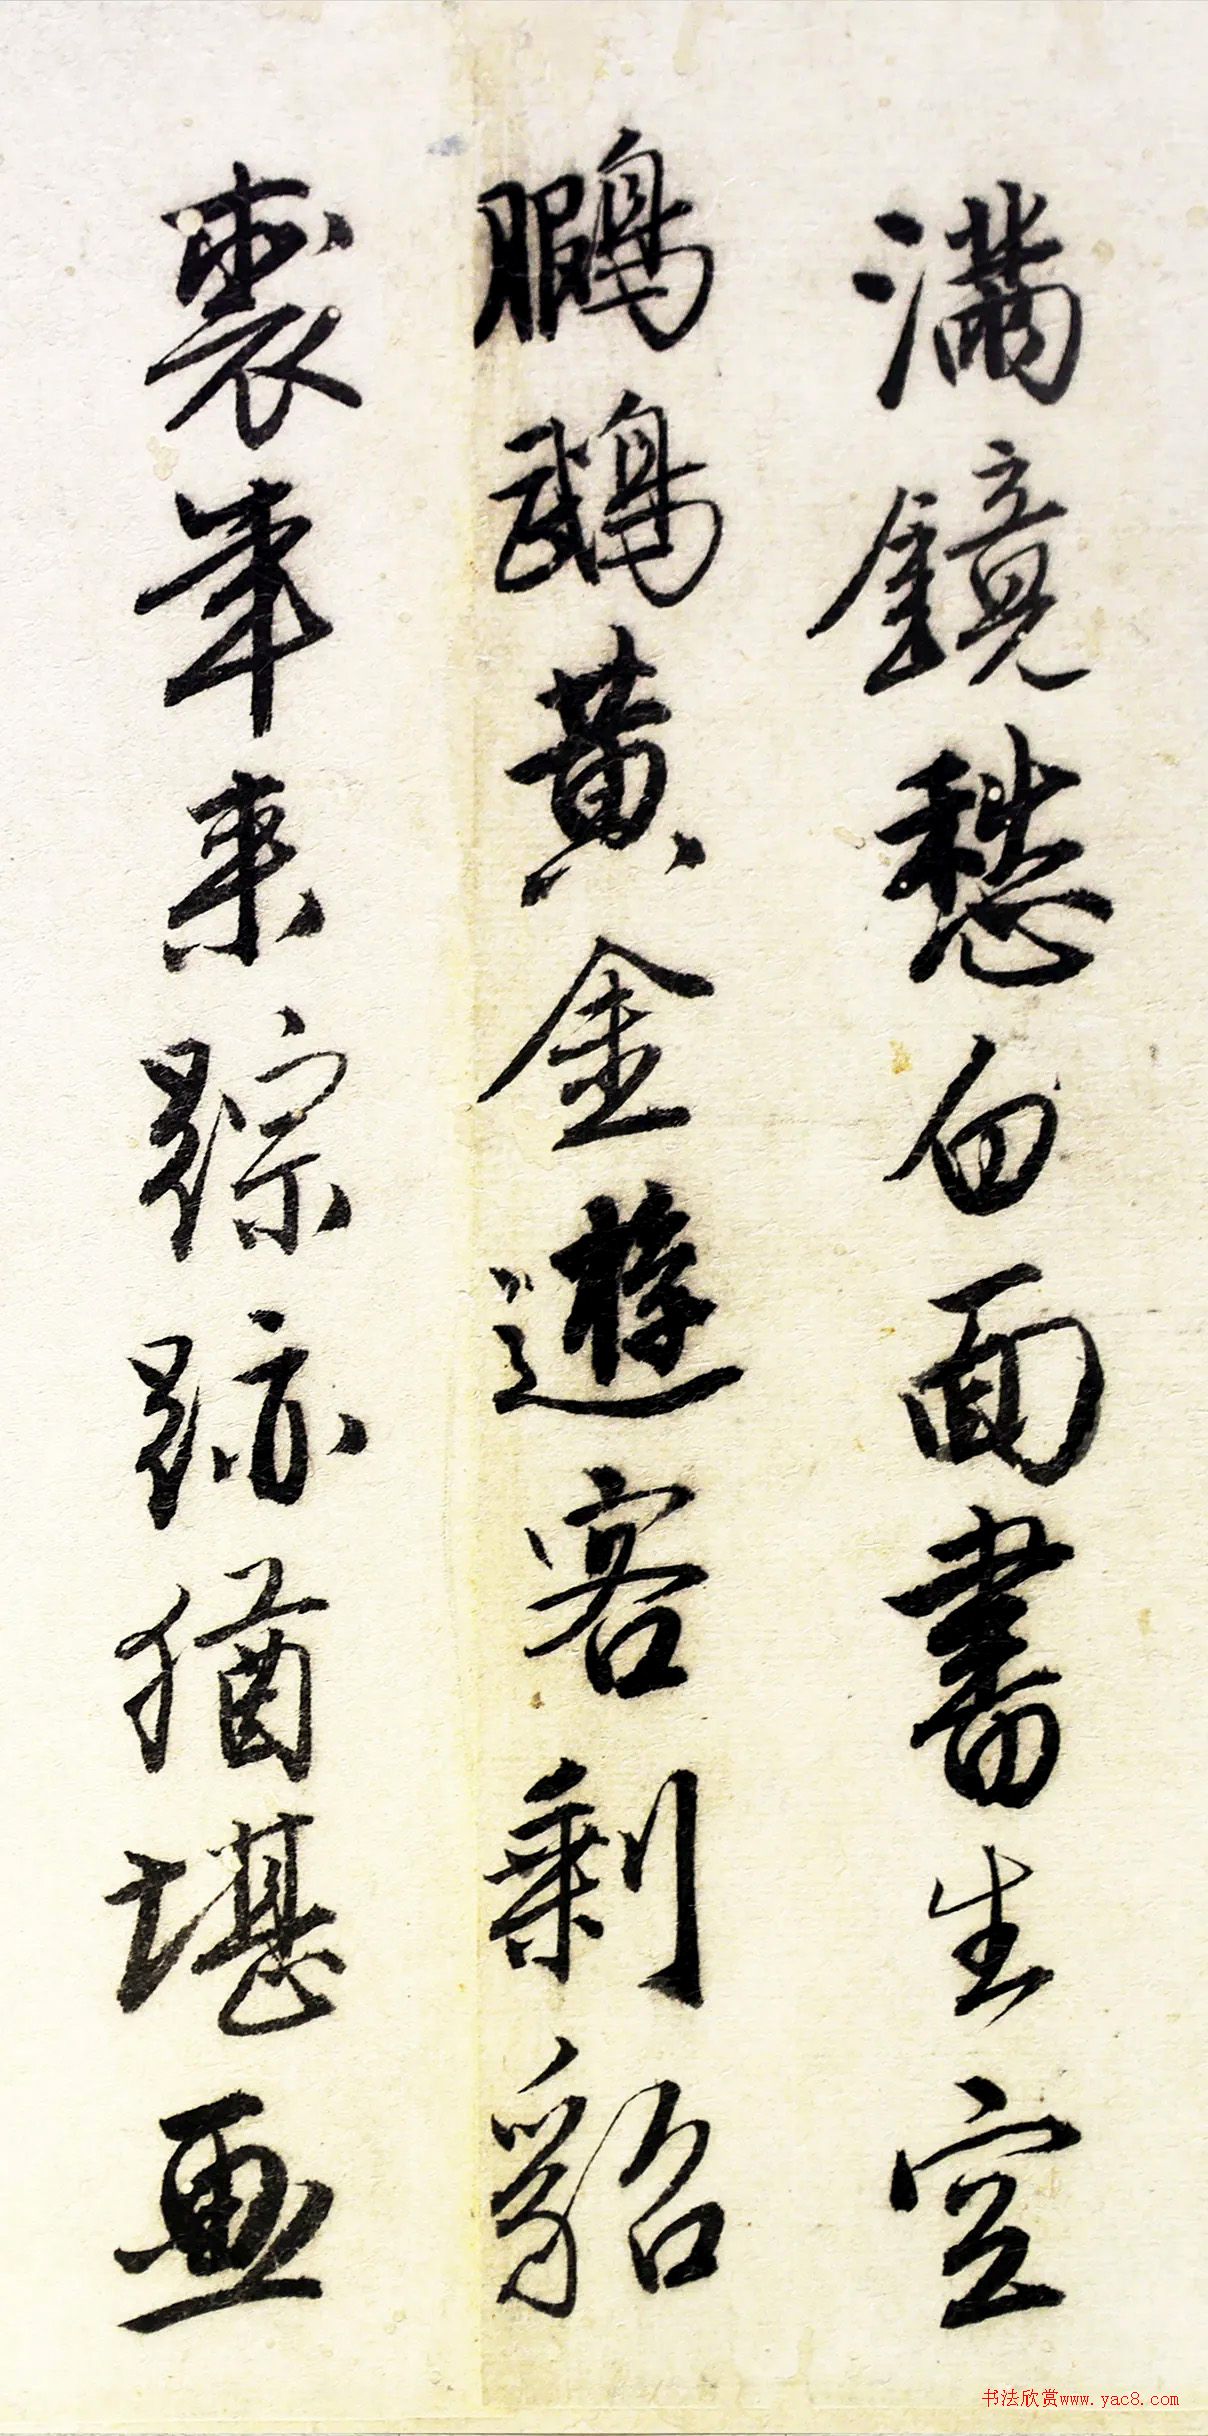 滿鏡愁白面書生空
鵬鵡黃金遊客剩貂
裘年来踪跡猶堪畫
书法欣赏www.yac8.com